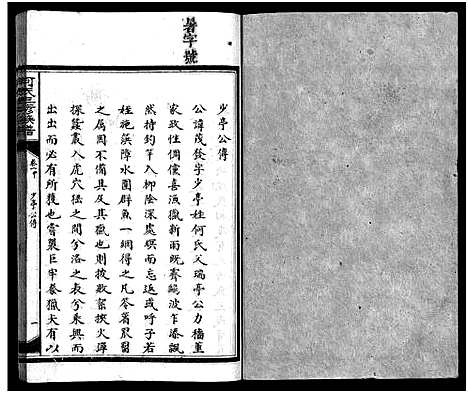 暑字號
少亭公傳
公諱茂發字少亭姓何氏父瑞亭公力穡重
家政性倜儻喜漁獵新雨既霽綠波乍添飄
然持釣竿入柳陰深處暝而忘返或呼子若
姪施簗障水圍群魚一網得之凡笭箵罛罶
之屬罔不備具及其獵也則挨數案挨火彈
探叢薮入虎穴猛之間兮洛之表乘興而
出出而必有所獲也嘗製巨牢養獵犬有以
卷十
少亭公傳
一